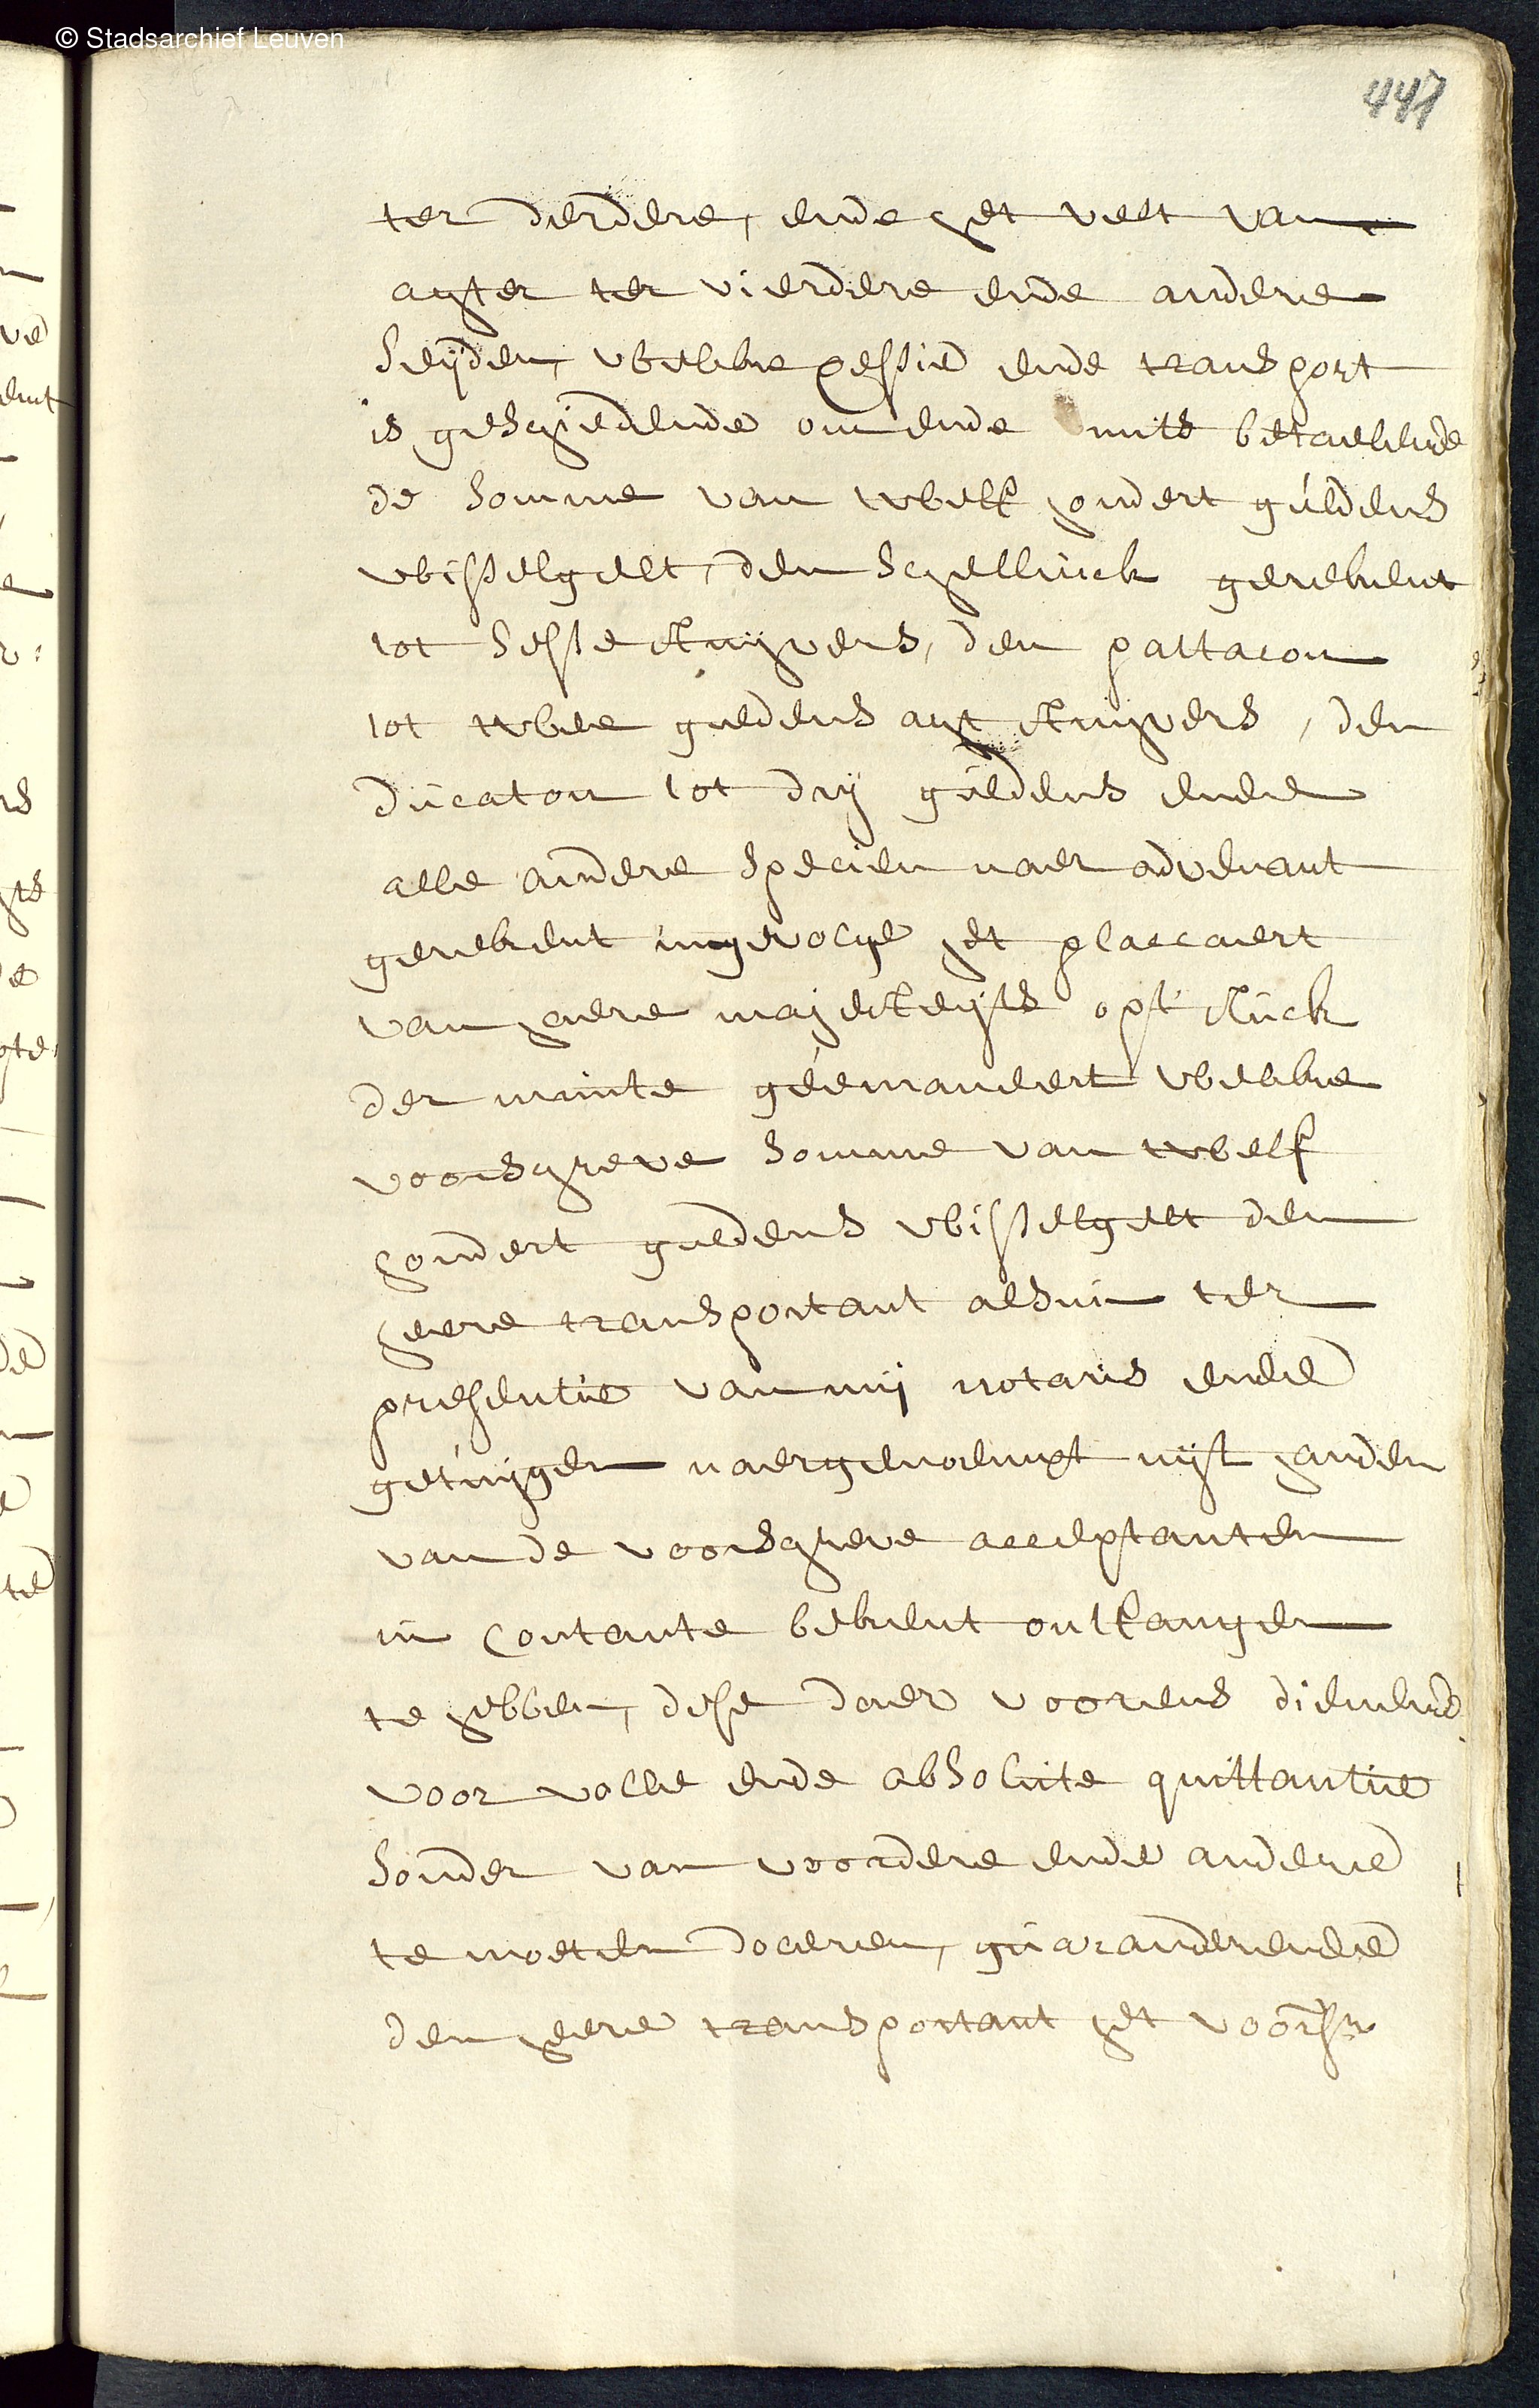 © Stadsarchief Leuven
447
ter derdere, ende het velt van
achter ter vierdere ende andere
seÿden, welcke cessie ende transport
is geschiedende om ende mits betaelende
de somme van twelf hondert guldens
wisselgelt, den schellinck gerekent
tot sesse stuyvers, den pattacon
tot twee guldens acht stuyvers, den
ducaton tot dry guldens ende
alle andere specien naer advenant
gerekent ingevolge het placcaert
van haere majesteyts opt stuck
der munte geëmaneert welcke
voorschreve somme van twelf
hondert guldens wisselgelt den
heere transportant alsnu ter
presentie van mij notaris ende
getuygen naergenoempt uyt handen
van de voorschreve acceptanten
in contante bekent ontfangen
te hebben, dese daer voorens dienende
voor volle ende absolute quittantie
sonder van voordere ende andere
te moeten doceren, guaranderende
den heere transportant het voorsr